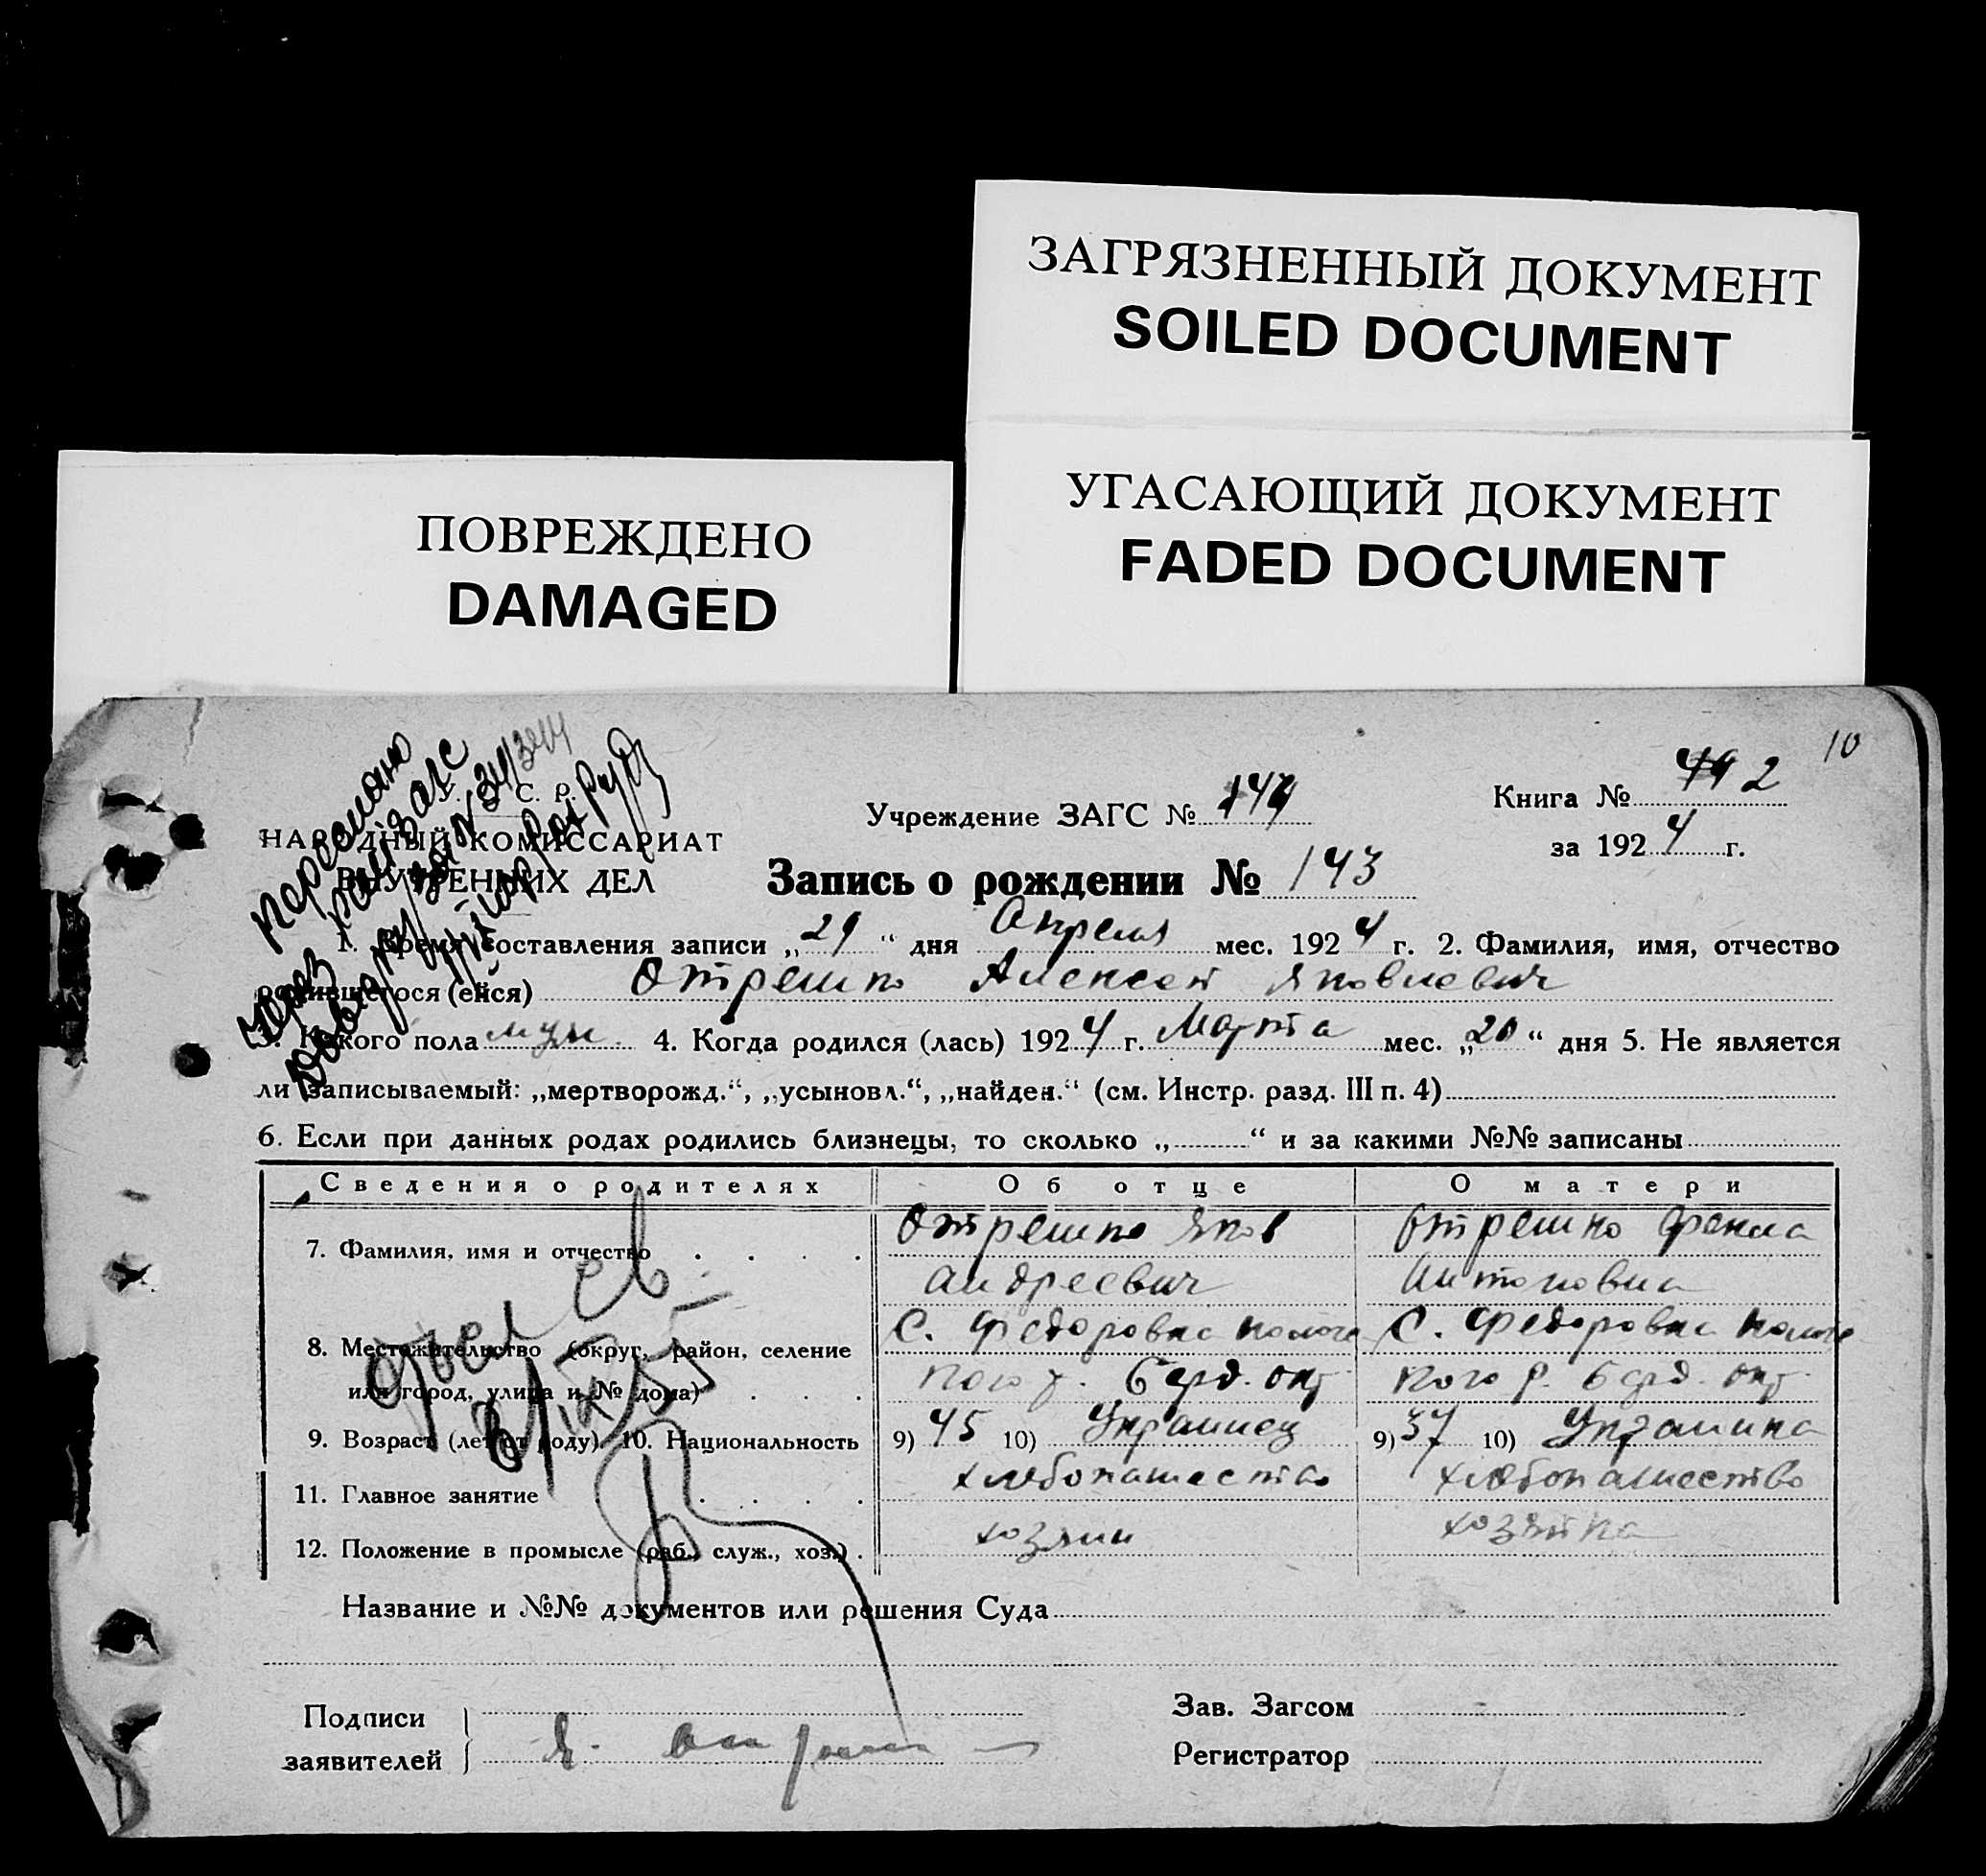 ЗАГРЯЗНЕННЫЙ ДОКУМЕНТ
SOILED DOCUMENT
УГАСАЮЩИЙ ДОКУМЕНТ
FADED DOCUMENT
ПОВРЕЖДЕНО
DAMAGED
10
У. С. С. Р.
НАРОДНЫЙ КОМИССАРИАТ
ВНУТРЕННИХ ДЕЛ
Учреждение ЗАГС №
Книга №
за 1924 г.
Запись о рождении № 143
1. Время составления записи „21“ дня Апреля мес. 1924 г. 2. Фамилия, имя, отчество
родившегося (ейся) Отрешко Алексей Яковлевич
3. Какого пола муж. 4. Когда родился (лась) 1924 г. Марта мес. „20“ дня 5. Не является
ли записываемый: „мертворожд.“, „усыновл.“, „найден.“ (см. Инстр. разд. III п. 4)
6. Если при данных родах родились близнецы, то сколько „ “ и за какими №№ записаны
Сведения о родителях Об отце О матери
7. Фамилия, имя и отчество Отрешко Яков Отрешко Фекла
Андреевич Антоновна
8. Местожительство (округ, район, селение С. Федоровка С. Федоровка
или город, улица и № дома) Берд. окр. Берд. окр.
9. Возраст (лет от роду) 10. Национальность 9) 45 10) Украинец 9) 37 10) Украинка
11. Главное занятие хлебопашество хлебопашество
12. Положение в промысле (раб., служ., хоз.) хозяин хозяйка
Название и №№ документов или решения Суда
Подписи
заявителей
Я.
Зав. Загсом
Регистратор